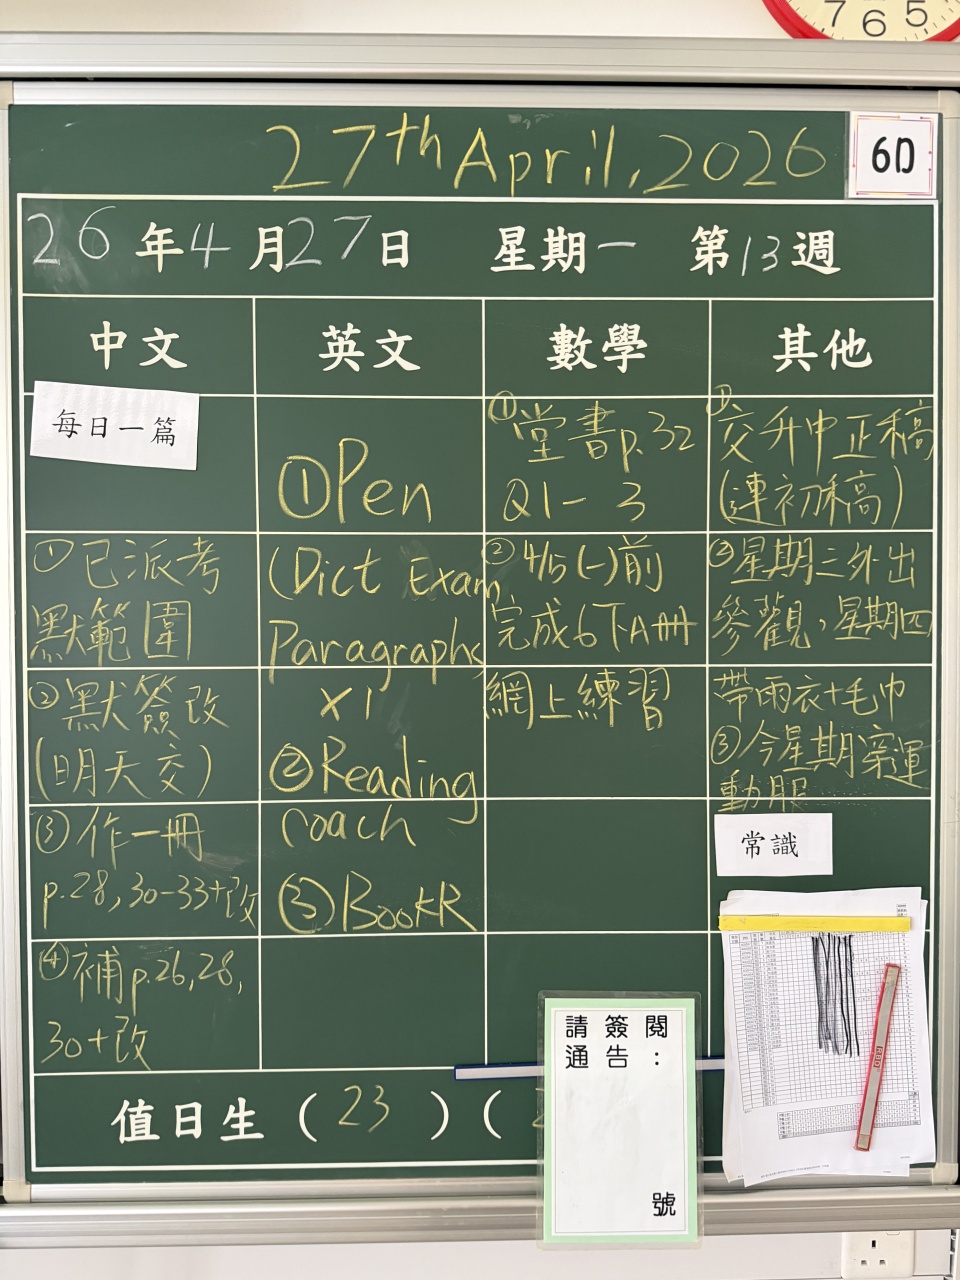 7 6 5
27th April, 2026
6D
26年4月27日 星期一 第13週
中文
英文
數學
其他
每日一篇
①已派考
默範圍
②默簽改
(明天交)
③作一冊
p.28,30-33+改
④補p.26,28,
30+改
①Pen
(Dict Exam
Paragraphs
x1
②Reading
coach
③BookR
①堂書p.32
Q1-3
②4/5(一)前
完成6下A冊
網上練習
①交升中正稿
(連初稿)
②星期三外出
參觀,星期四
帶雨衣+毛巾
③今星期穿運
動服
常識
請簽閱
通告:
號
值日生(23)(